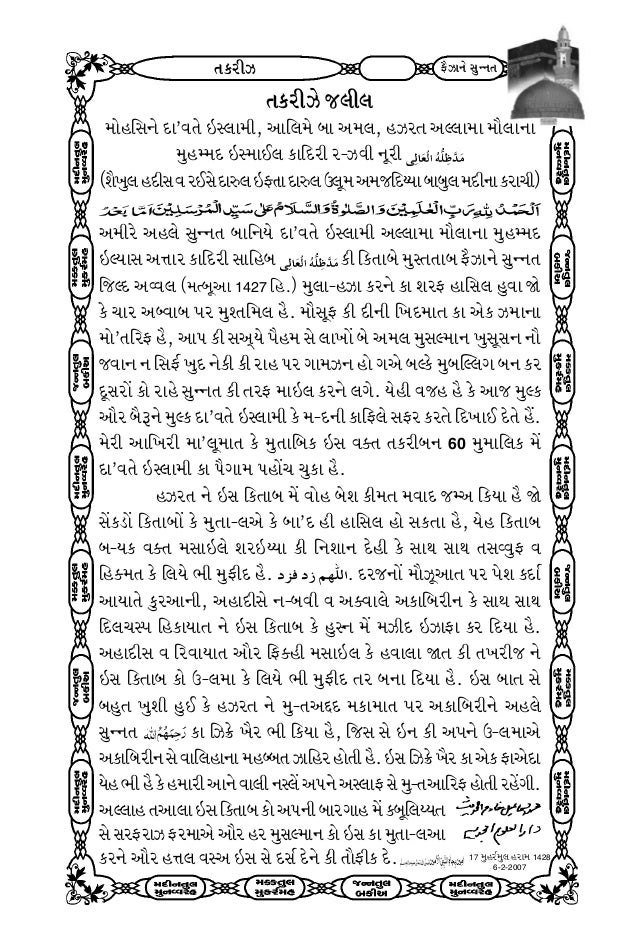 તકરીઝ
ફૈઝાને સુન્નત
તકરીઝે જલીલ
મોહસિને દા'વતે ઇસ્લામી, આલિમે બા અમલ, હઝરત અલ્લામા મૌલાના
મુહમ્મદ ઇસ્માઈલ કાદિરી ર-ઝવી નૂરી مَدَّظِلُّهُ الْعَالِی
(શૈખુલ હદીસ વ રઈસે દારુલ ઇફ્તા દારુલ ઉલૂમ અમજદિય્યા બાબુલ મદીના કરાચી)
اَلْحَمْدُ لِلّٰهِ رَبِّ الْعٰلَمِيْنَ وَالصَّلٰوةُ وَالسَّلَامُ عَلٰى سَيِّدِ الْمُرْسَلِيْنَ اَمَّا بَعْدُ
અમીરે અહલે સુન્નત બાનિયે દા'વતે ઇસ્લામી અલ્લામા મૌલાના મુહમ્મદ
ઇલ્યાસ અત્તાર કાદિરી સાહિબ مَدَّظِلُّهُ الْعَالِی કી કિતાબે મુસ્તતાબ ફૈઝાને સુન્નત
જિલ્દ અવ્વલ (મત્બૂઆ 1427 હિ.) મુલા-હઝા કરને કા શરફ હાસિલ હુવા જો
કે ચાર અબ્વાબ પર મુશ્તમિલ હૈ. મૌસૂફ કી દીની ખિદમાત કા એક ઝમાના
મો'તરિફ હૈ, આપ કી સઅ્યે પૈહમ સે લાખોં બે અમલ મુસલ્માન ખુસૂસન નૌ
જવાન ન સિર્ફ ખુદ નેકી કી રાહ પર ગામઝન હો ગએ બલ્કે મુબલ્લિગ બન કર
દૂસરોં કો રાહે સુન્નત કી તરફ માઇલ કરને લગે. યેહી વજહ હૈ કે આજ મુલ્ક
ઔર બૈરૂને મુલ્ક દા'વતે ઇસ્લામી કે મ-દની કાફિલે સફર કરતે દિખાઈ દેતે હૈં.
મેરી આખિરી મા'લૂમાત કે મુતાબિક ઇસ વક્ત તકરીબન 60 મુમાલિક મેં
દા'વતે ઇસ્લામી કા પૈગામ પહોંચ ચુકા હૈ.
હઝરત ને ઇસ કિતાબ મેં વોહ બેશ કીમત મવાદ જમ્અ કિયા હૈ જો
સેંકડોં કિતાબોં કે મુતા-લએ કે બા'દ હી હાસિલ હો સકતા હૈ, યેહ કિતાબ
બ-યક વક્ત મસાઇલે શરઇય્યા કી નિશાન દેહી કે સાથ સાથ તસવ્વુફ વ
હિક્મત કે લિયે ભી મુફીદ હૈ. اللّٰهم زد فزد. દરજનોં મૌઝૂઆત પર પેશ કર્દા
આયાતે કુરઆની, અહાદીસે ન-બવી વ અક્વાલે અકાબિરીન કે સાથ સાથ
દિલચસ્પ હિકાયાત ને ઇસ કિતાબ કે હુસ્ન મેં મઝીદ ઇઝાફા કર દિયા હૈ.
અહાદીસ વ રિવાયાત ઔર ફિક્હી મસાઇલ કે હવાલા જાત કી તખરીજ ને
ઇસ કિતાબ કો ઉ-લમા કે લિયે ભી મુફીદ તર બના દિયા હૈ. ઇસ બાત સે
બહુત ખુશી હુઈ કે હઝરત ને મુ-તઅદ્દદ મકામાત પર અકાબિરીને અહલે
સુન્નત رَحِمَهُمُ اللّٰه કા ઝિક્રે ખૈર ભી કિયા હૈ, જિસ સે ઇન કી અપને ઉ-લમાએ
અકાબિરીન સે વાલિહાના મહબ્બત ઝાહિર હોતી હૈ. ઇસ ઝિક્રે ખૈર કા એક ફાએદા
યેહ ભી હૈ કે હમારી આને વાલી નસ્લેં અપને અસ્લાફ સે મુ-તઆરિફ હોતી રહેંગી.
અલ્લાહ તઆલા ઇસ કિતાબ કો અપની બારગાહ મેં કબૂલિય્યત
સે સરફરાઝ ફરમાએ ઔર હર મુસલ્માન કો ઇસ કા મુતા-લઆ
કરને ઔર હત્તલ વસ્અ ઇસ સે દર્સ દેને કી તૌફીક દે.
17 મુહર્રમુલ હરામ 1428
6-2-2007
મદીનતુલ મુનવ્વરહ
મક્કતુલ મુકર્રમહ
જન્નતુલ બકીઅ
મદીનતુલ મુનવ્વરહ
મક્કતુલ મુકર્રમહ
જન્નતુલ બકીઅ
મદીનતુલ મુનવ્વરહ
મદીનતુલ મુનવ્વરહ
જન્નતુલ બકીઅ
મક્કતુલ મુકર્રમહ
મદીનતુલ મુનવ્વરહ
જન્નતુલ બકીઅ
મક્કતુલ મુકર્રમહ
મદીનતુલ મુનવ્વરહ
મદીનતુલ મુનવ્વરહ
મક્કતુલ મુકર્રમહ
જન્નતુલ બકીઅ
મદીનતુલ મુનવ્વરહ